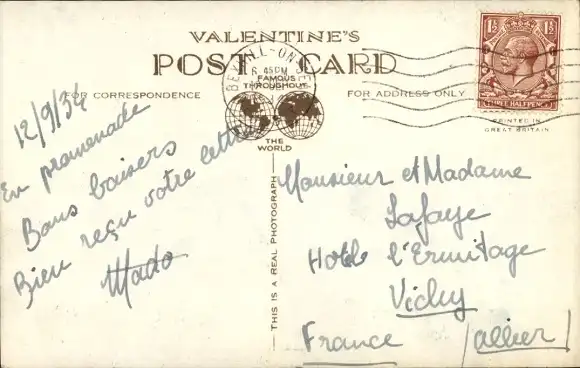 VALENTINE'S
POST CARD
FAMOUS
THROUGHOUT
THE
WORLD
FOR CORRESPONDENCE
FOR ADDRESS ONLY
PRINTED IN
GREAT BRITAIN
THIS IS A REAL PHOTOGRAPH
1½ 1½
THREE HALFPENCE
BEXHILL-ON-SEA
6.45PM
12/9/34
En promenade
Bons baisers
Bien reçu votre lettre
Mado
Monsieur et Madame
Lafaye
Hotel l'Ermitage
Vichy
France (allier)